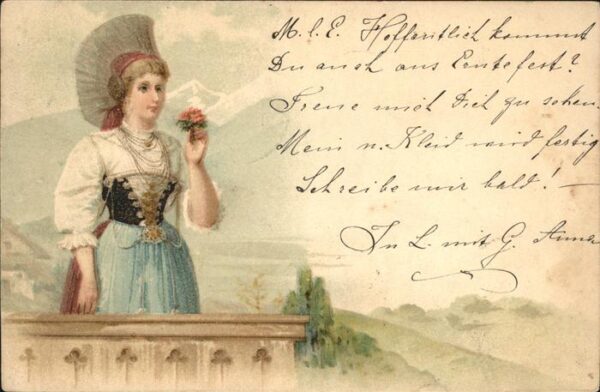 M. l. E. Hoffentlich kommst
Du auch ans Erntefest?
Freue mich Dich zu sehen.
Mein n. Kleid wird fertig
Schreibe mir bald! —
In L. mit G. Anna